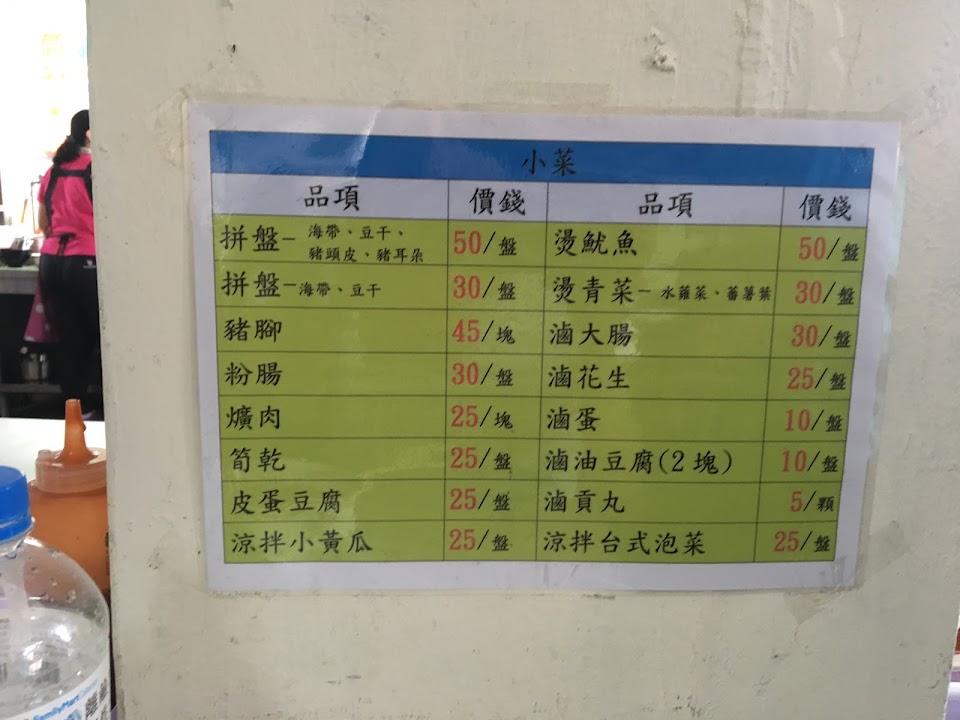 小菜
品項 價錢 品項 價錢
拼盤- 海帶、豆干、豬頭皮、豬耳朵 50/盤 燙魷魚 50/盤
拼盤-海帶、豆干 30/盤 燙青菜- 水蕹菜、蕃薯葉 30/盤
豬腳 45/塊 滷大腸 30/盤
粉腸 30/盤 滷花生 25/盤
爌肉 25/塊 滷蛋 10/盤
筍乾 25/盤 滷油豆腐(2塊) 10/盤
皮蛋豆腐 25/盤 滷貢丸 5/顆
涼拌小黃瓜 25/盤 涼拌台式泡菜 25/盤
FamilyMart